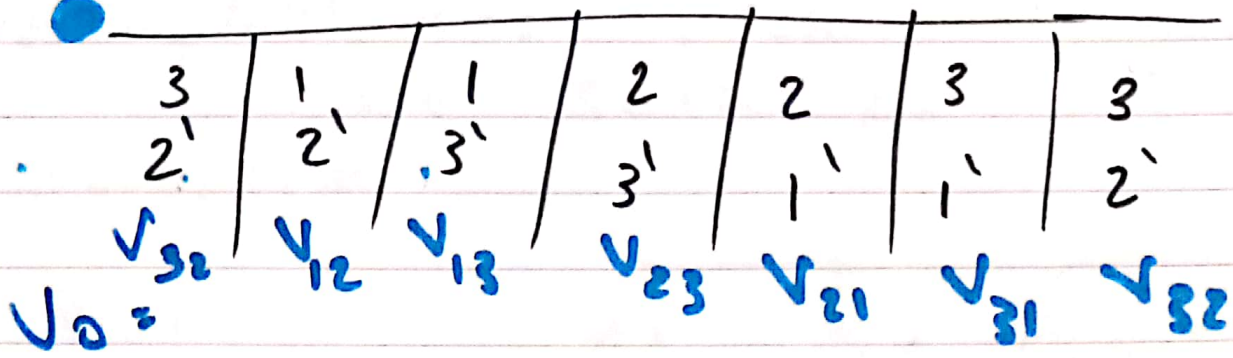 3 1 1 2 2 3 3
2' 2' 3' 3' 1' 1' 2'
V32 V12 V13 V23 V21 V31 V32
Vo =